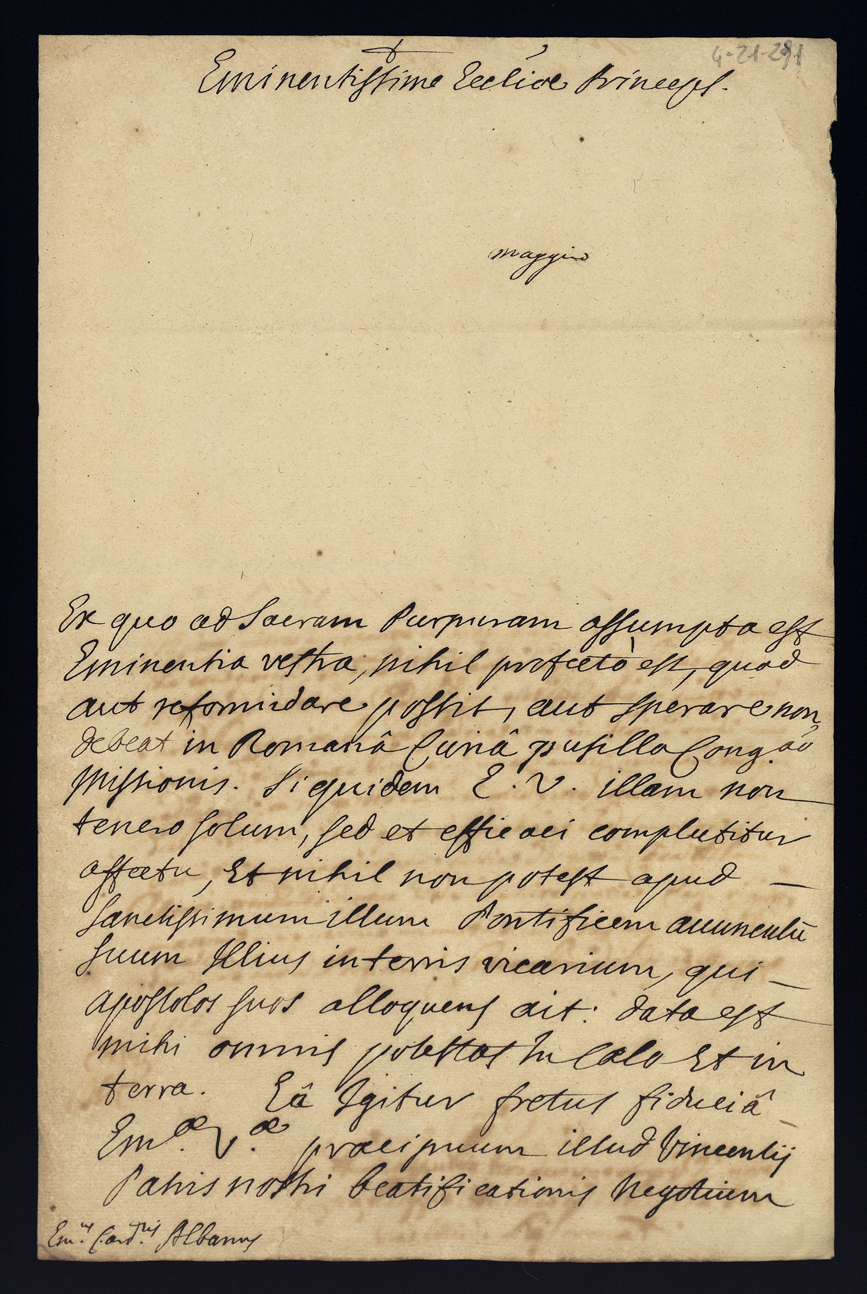 4-21-291
Eminentissime Eccliæ Princeps.
maggio
Ex quo ad Sacram Purpuram assumpta est
Eminentia vestra, nihil profectò est, quod
aut reformidare possit, aut sperare non
debeat in Romanâ Curiâ pusilla Cong.ao
Missionis. Siquidem E. V. illam non
tenero solum, sed et efficaci complectitur
affectu, Et nihil non potest apud —
Sanctissimum illum Pontificem avunculū
suum Illius in terris vicarium, qui —
apostolos suos alloquens ait: data est
mihi omnis potestas In Cælo Et in
terra. Eâ Igitur fretus fiduciâ
Em.æ V.æ præcipuum illud Vincentij
Patris nostri beatificationis Negotium
Em.us Card.lis Albanus